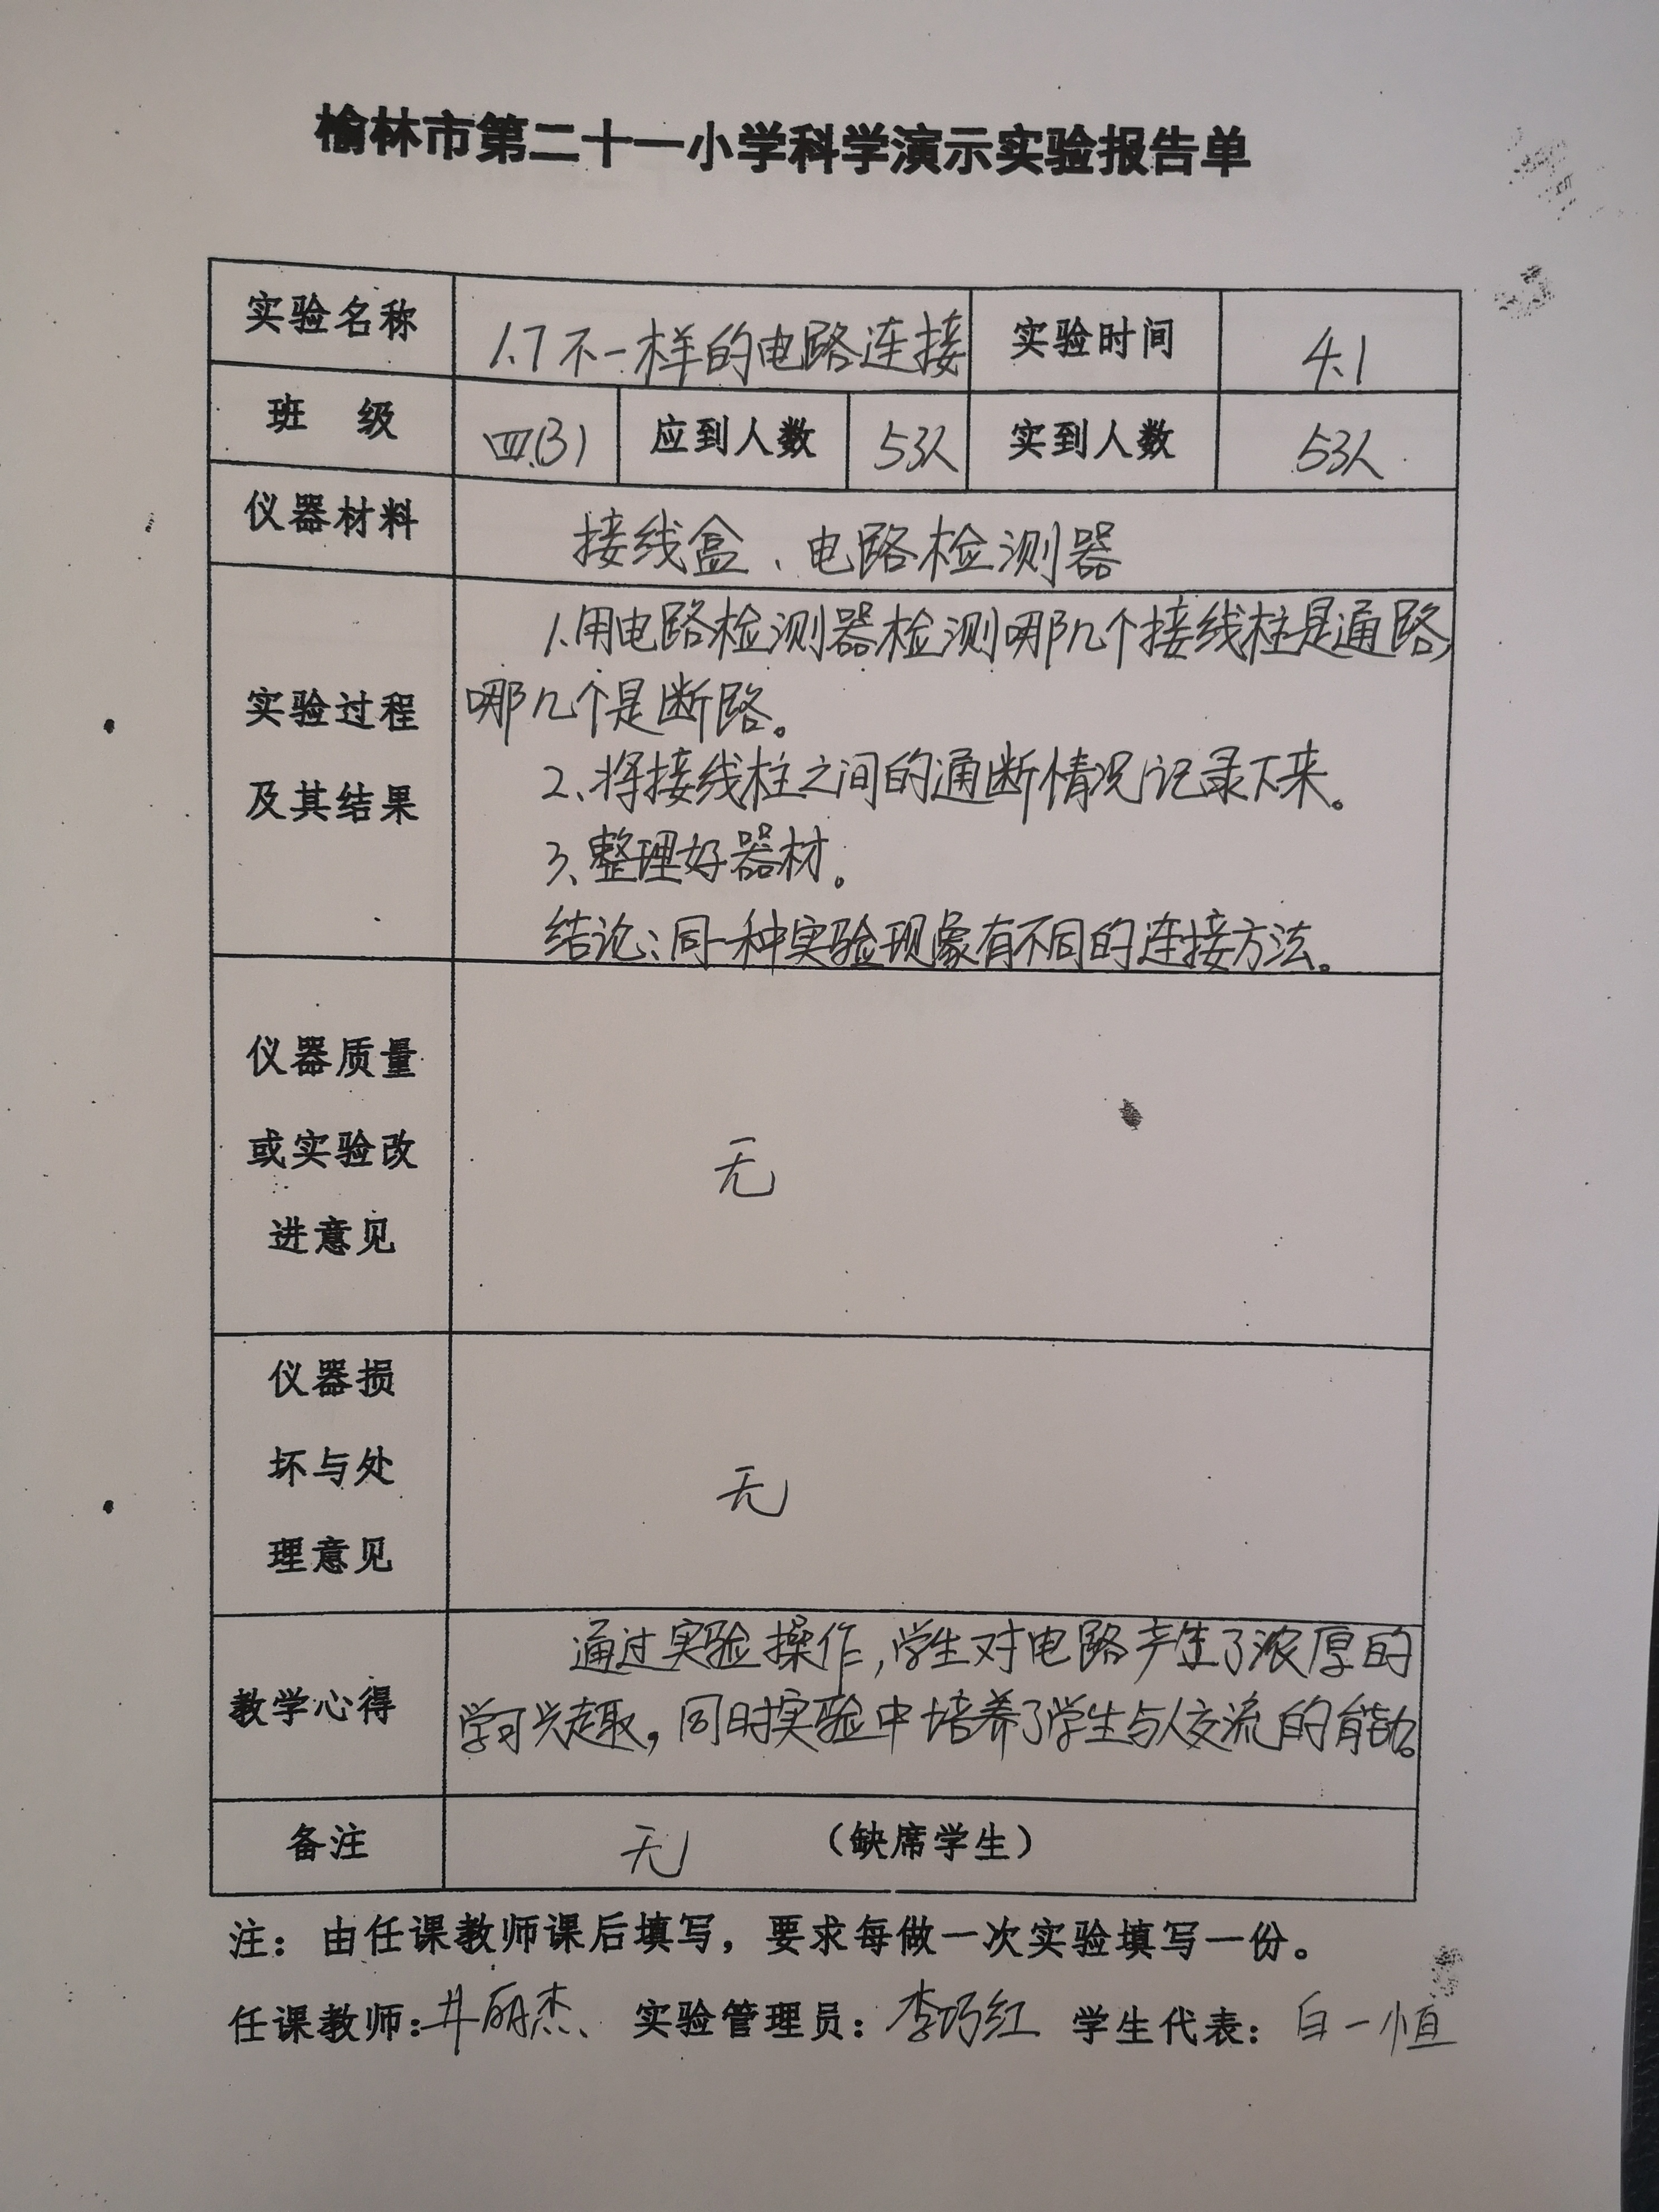 榆林市第二十一小学科学演示实验报告单
实验名称 1.7不一样的电路连接 实验时间 4.1
班 级 四.(3) 应到人数 53人 实到人数 53人
仪器材料 接线盒、电路检测器
1.用电路检测器检测哪几个接线柱是通路,
哪几个是断路。
实验过程
2、将接线柱之间的通断情况记录下来。
及其结果
3、整理好器材。
结论:同一种实验现象有不同的连接方法。
仪器质量
或实验改
无
进意见
仪器损
坏与处
无
理意见
通过实验操作,学生对电路产生了浓厚的
教学心得
学习兴趣,同时实验中培养了学生与人交流的能力。
备注 无 (缺席学生)
注:由任课教师课后填写,要求每做一次实验填写一份。
任课教师:井丽杰、 实验管理员:李巧红 学生代表:白一恒